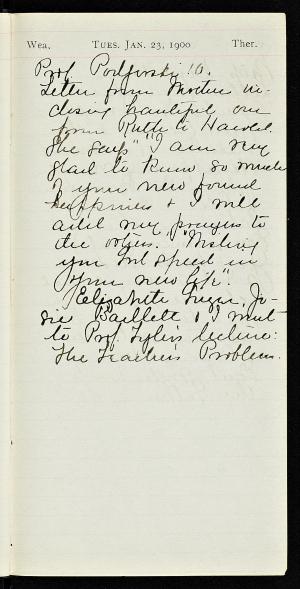 Wea. TUES. JAN. 23, 1900 Ther.
Prof. Podgorski 10.
Letter from Mother in-
closing beautiful one
from Ruth to Harold.
She says "I am very
glad to know so much
of your new found
happiness & I will
add my prayers to
the others. Wishing
you God speed in
your new life".
Elizabeth Luger, Jo-
sie Bartlett & I went
to Prof. Tyler's lecture:
The Teacher's Problem.